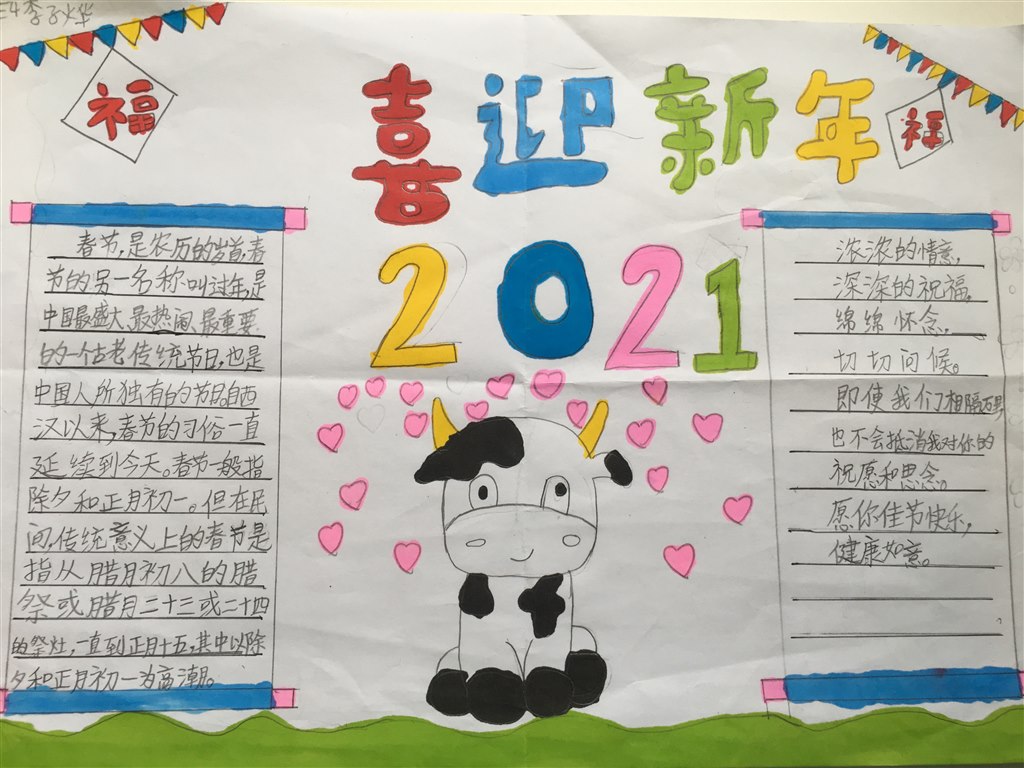 李子烨
福
喜迎新年
福
2021
春节,是农历的岁首,春
节的另一名称叫过年,是
中国最盛大、最热闹、最重要
的一个古老传统节日,也是
中国人所独有的节日。自西
汉以来,春节的习俗一直
延续到今天。春节一般指
除夕和正月初一。但在民
间,传统意义上的春节是
指从腊月初八的腊
祭或腊月二十三或二十四
的祭灶,一直到正月十五,其中以除
夕和正月初一为高潮。
浓浓的情意,
深深的祝福,
绵绵怀念,
切切问候。
即使我们相隔万里,
也不会抵消我对你的
祝愿和思念。
愿你佳节快乐,
健康如意。